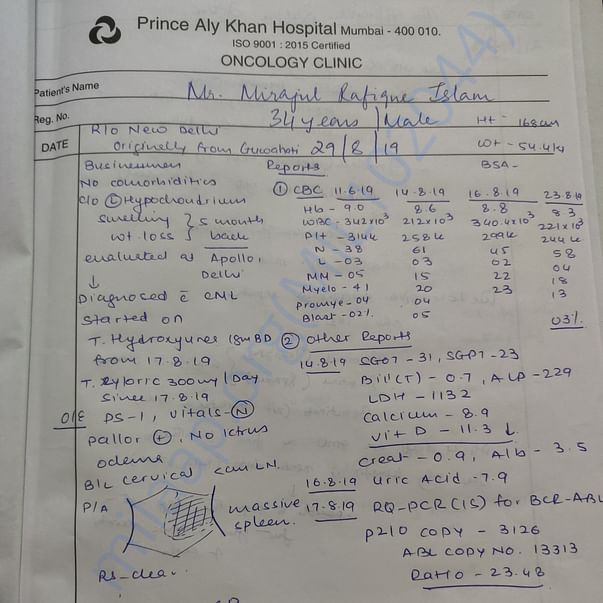 Prince Aly Khan Hospital Mumbai - 400 010.
ISO 9001 : 2015 Certified
ONCOLOGY CLINIC
Patient's Name Mr. Mirajul Rafique Islam
Reg. No. 34 years / Male Ht - 168 cm
DATE R/o New Delhi
Originally from Guwahati 29/8/19 Wt - 54.4 kg
Businessman Reports BSA -
No comorbidities
① CBC 11.6.19 14.8.19 16.8.19 23.8.19
c/o Ⓛ Hypochondrium
Hb - 9.0 8.6 8.8 8.3
swelling } 5 month
WBC - 342x10³ 212x10³ 340.4x10³ 221x10³
wt. loss } back
Plt - 314k 258k 299k 244k
N - 38 61 45 58
evaluated at Apollo,
Delhi
L - 03 03 02 04
MM - 05 15 22 18
↓
Diagnosed c̄ CML
Myelo - 41 20 23 13
Promye - 04 04
started on
Blast - 02% 05 03%
T. Hydroxyurea 1gm BD
② Other Reports
from 17.8.19
14.8.19 SGOT - 31, SGPT - 23
T. Zyloric 300mg / Day
Bil(T) - 0.7, ALP - 229
since 17.8.19
LDH - 1132
O/E PS-1, vitals - Ⓝ
Calcium - 8.9
Pallor ⊕, No Ictrus
Vit D - 11.3 ↓
odema
Creat - 0.9, Alb - 3.5
B/L cervical LN.
16.8.19 Uric Acid - 7.9
P/A massive
spleen.
17.8.19 RQ-PCR (IS) for BCR-ABL
P210 COPY - 3126
ABL COPY NO. 13313
RS - clear.
Ratio - 23.48
milaap.org